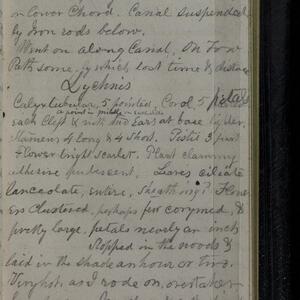 on lower Chord. Canal suspended
by Iron rods below.
Went on along Canal, on Tow
Path some, by which lost time & distance
Lychnis
Calyx tubular, 5 pointed, Corol, 5 petals
a point in middle
each Cleft & with two Ears at base
Stamens 4 long & 4 Short. Pistil 3
Flower bright Scarlet. Plant clammy
adhesive pubescent, Leaves ciliate
lanceolate, entire, Sheathing? Flow
ers clustered, perhaps few corymed, &
pretty large, petals nearly an inch
Stopped in the woods &
laid in the shade an hour or two.
Very hot, as I rode on,